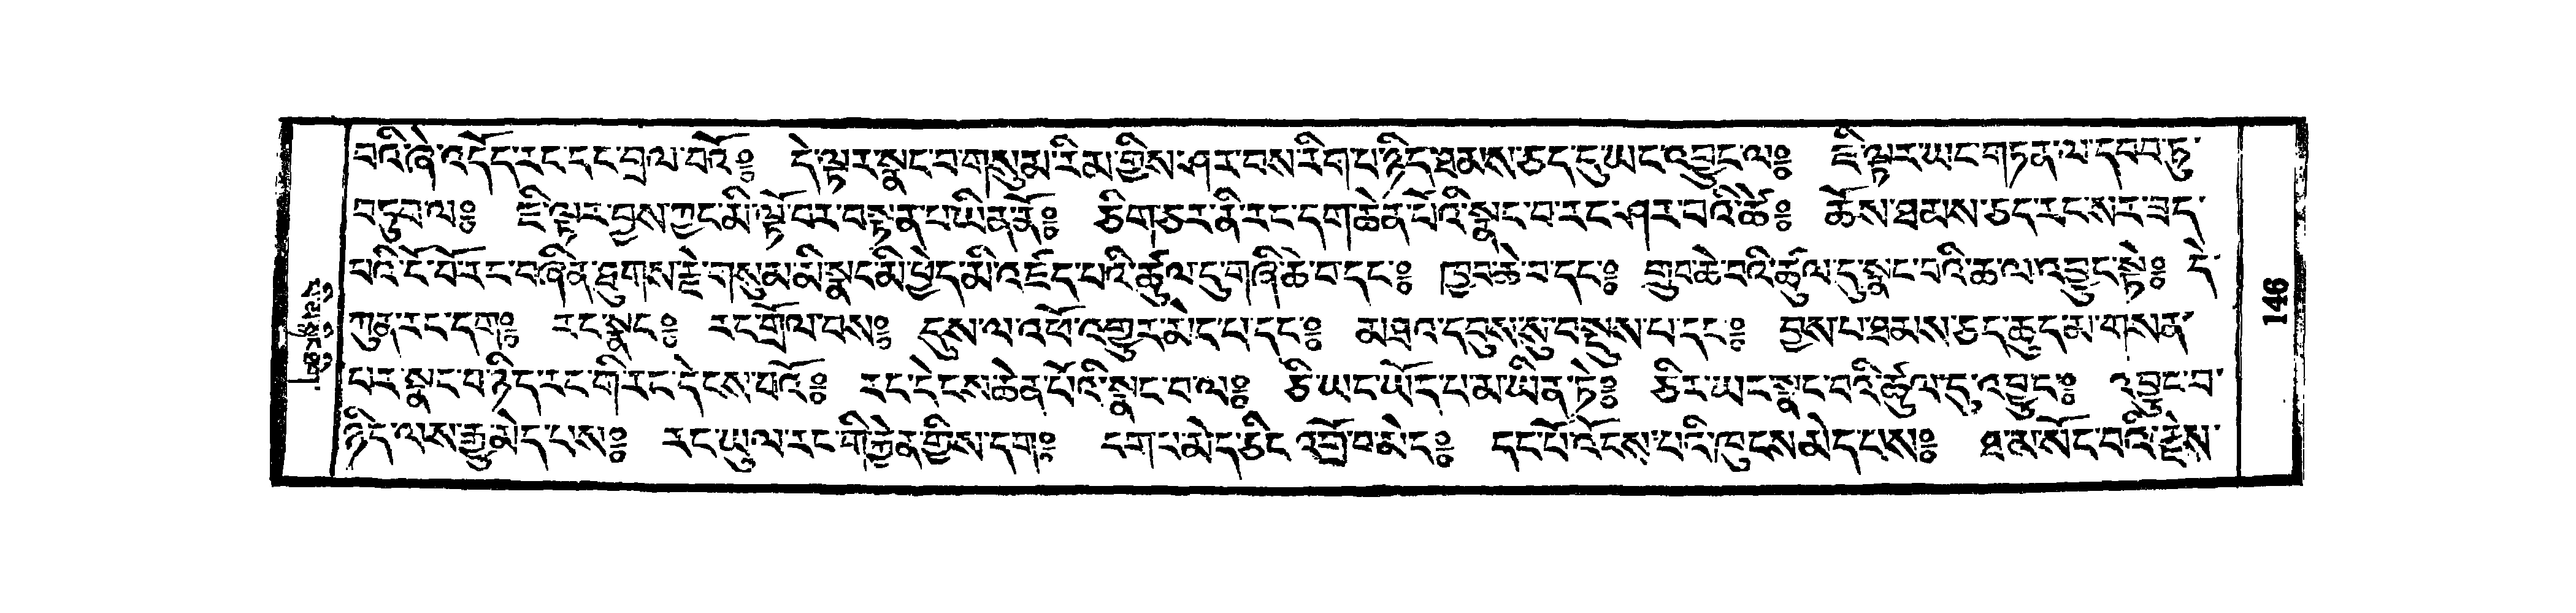 བའི་ཞེ་འདོད་རང་དང་བྲལ་བའོ༔ དེ་ལྟར་སྣང་བ་གསུམ་རིམ་གྱིས་ཤར་བས་རིག་པ་ཉིད་ཐམས་ཅད་དུ་ཡང་འབྱུང་ལ༔ ཇི་ལྟར་ཡང་གཏན་ལ་དབབ་ཏུ་
བཏུབ་ལ༔ ཇི་ལྟར་བྱས་ཀྱང་མི་ལྟོ་བར་བསྟན་པ་ཡིན་ནོ༔ ཅིག་ཅར་ནི་རང་དག་ཆེན་པོའི་སྣང་བ་རང་ཤར་བའི་ཚེ༔ ཆོས་ཐམས་ཅད་རང་སར་བྲད་
པའི་ངོ་བོ་རང་བཞིན་ཐུགས་རྗེ་གསུམ་མི་སྣང་མི་ཕྱེད་མི་འཇོད་པའི་ཚུལ་དུ་གཞི་ཆེ་བ་དང༔ ཁྱབ་ཆེ་བ་དང༔ གྲུབ་ཆེ་བའི་ཚུལ་དུ་སྣང་བའི་ཆ་ལ་འབྱུང་སྟེ༔ དེ་
ཀུན་རང་དག༔ རང་སྣང༔ རང་གྲོལ་བས༔ དུས་ལ་འཕོ་འགྱུར་མེད་པ་དང༔ མཐའ་དབུས་སུ་བསྡུས་པ་དང༔ བྱས་པ་ཐམས་ཅད་ཆུད་མ་གསན་
པར་སྣང་བ་ཉིད་རང་གི་རང་དེངས་པའོ༔ རང་དེངས་ཆེན་པོའི་སྣང་བ་ལ༔ ཅི་ཡང་ཡོད་པ་མ་ཡིན་ཏེ༔ ཅིར་ཡང་སྣང་བའི་ཚུལ་དུ་འབྱུང༔ འབྱུང་བ་
ཉིད་ལས་རྒྱུ་མེད་པས༔ རང་ཡུལ་རང་གི་རྐྱེན་གྱིས་དག༔ དག་པ་མེད་ཅིང་འགྲོ་བ་མེད༔ དང་པོ་འོངས་པའི་ཁུངས་མེད་པས༔ ཐ་མ་སོང་བའི་རྗེས་
146